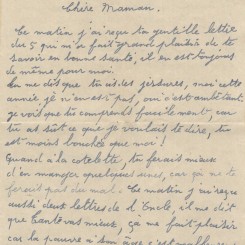 Chère Maman.
Ce matin j'ai reçu ta gentille lettre
du 5 qui m'a fait grand plaisir de te
savoir en bonne santé, il en est toujours
de même pour moi.
tu me dis que tu as des gerçures, moi cette
année je n'en ai pas, oui c'est embêtant
je vois que tu comprends facilement, car
tu as sût ce que je voulait te dire, tu
est moins bouchée que moi!
Quand à la cotelette, tu ferais mieux
d'en manger quelques unes, car ça ne te
ferait pas du mal. Ce matin j'ai reçu
aussi deux lettres de l'Oncle, il me dit
que tante vas mieux, ça me fait plaisir
car la pauvre à son âge c'est